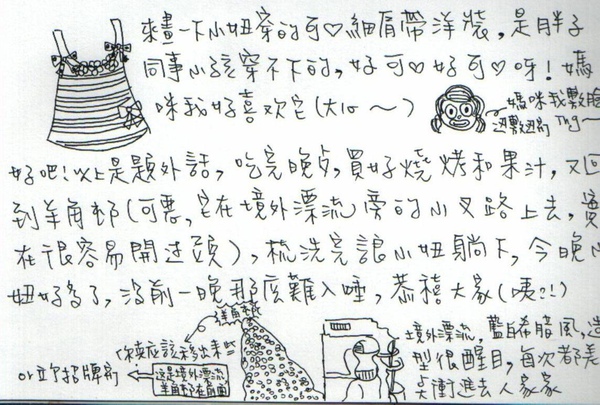 來畫一下小妞穿的可♡細肩帶洋裝，是胖子
同事小孩穿不下的，好可♡好可♡呀！媽
咪我好喜欢它(大心～)
媽咪我敷臉
好吧！以上是題外話，吃完晚夕，買好燒烤和果汁，又回
到羊角邨(可惡，它在境外漂流旁的小叉路上去，實
在很容易開过頭)，梳洗完誤小妞躺下，今晚小
妞好多了，沒前一晚那麼難入睡，恭禧大家(咦?!)
羊角邨
你真应该移出來
這是境外漂流
羊角邨在前面
or立个招牌前
境外漂流，藍白希腊風，造
型很醒目，每次都差
点衝進去人家家